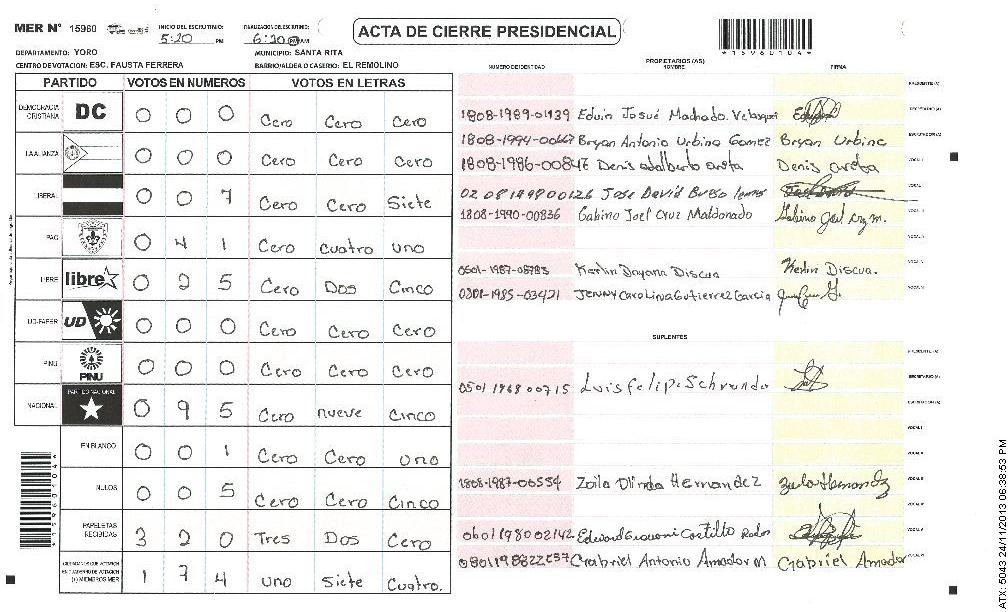 MER N° 15960 INICIO DEL ESCRUTINIO: 5:20 PM FINALIZACION DEL ESCRUTINIO: 6:20 PM AM ACTA DE CIERRE PRESIDENCIAL *15960104*
DEPARTAMENTO: YORO MUNICIPIO: SANTA RITA
CENTRO DE VOTACION: ESC. FAUSTA FERRERA BARRIO/ALDEA O CASERIO: EL REMOLINO
PARTIDO VOTOS EN NUMEROS VOTOS EN LETRAS
DEMOCRACIA CRISTIANA DC 0 0 0 Cero Cero Cero
LA ALIANZA 0 0 0 Cero Cero Cero
LIBERAL 0 0 7 Cero Cero Siete
PAC 0 4 1 Cero cuatro uno
LIBRE libre 0 2 5 Cero Dos Cinco
UD-FAPER UD 0 0 0 Cero Cero Cero
PINU PINU 0 0 0 Cero Cero Cero
NACIONAL PARTIDO NACIONAL 0 9 5 Cero nueve Cinco
EN BLANCO 0 0 1 Cero Cero uno
NULOS 0 0 5 Cero Cero Cinco
PAPELETAS RECIBIDAS 3 2 0 Tres Dos Cero
CIUDADANOS QUE VOTARON EN CUADERNO DE VOTACION (+) MIEMBROS MER 1 7 4 uno Siete Cuatro.
*15960104*
PROPIETARIOS (AS)
NUMERO DE IDENTIDAD NOMBRE FIRMA
PRESIDENTE (A)
1808-1989-01139 Edwin Josué Machado Velasquez SECRETARIO (A)
1808-1994-00667 Bryan Antonio Urbina Gomez Bryan Urbina ESCRUTADOR (A)
1808-1986-00847 Denis adalberto Denis VOCAL I
0208199800126 Jose David VOCAL II
1808-1990-00836 Gabino Joel Cruz Maldonado Gabino Joel Cruz m. VOCAL III
0501-1987-08783 Kerlin Dayana Discua Kerlin Discua.
0301-1985-03421 JENNY Carolina Gutierrez Garcia
SUPLENTES
PRESIDENTE (A)
0501196800715 Luis Felipe SECRETARIO (A)
ESCRUTADOR (A)
1808-1987-00554 Zoila Olinda Hernandez Zoila Hernandez
0601198002142 Edward Giovanni Castillo
Gabriel Antonio Amador M Gabriel Amador
ATX: 5043 24/11/2013 06:38:53 PM